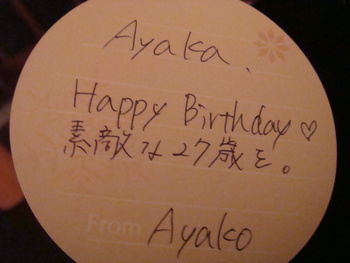 Ayaka.
Happy Birthday ♡
素敵な27歳を。
From Ayako